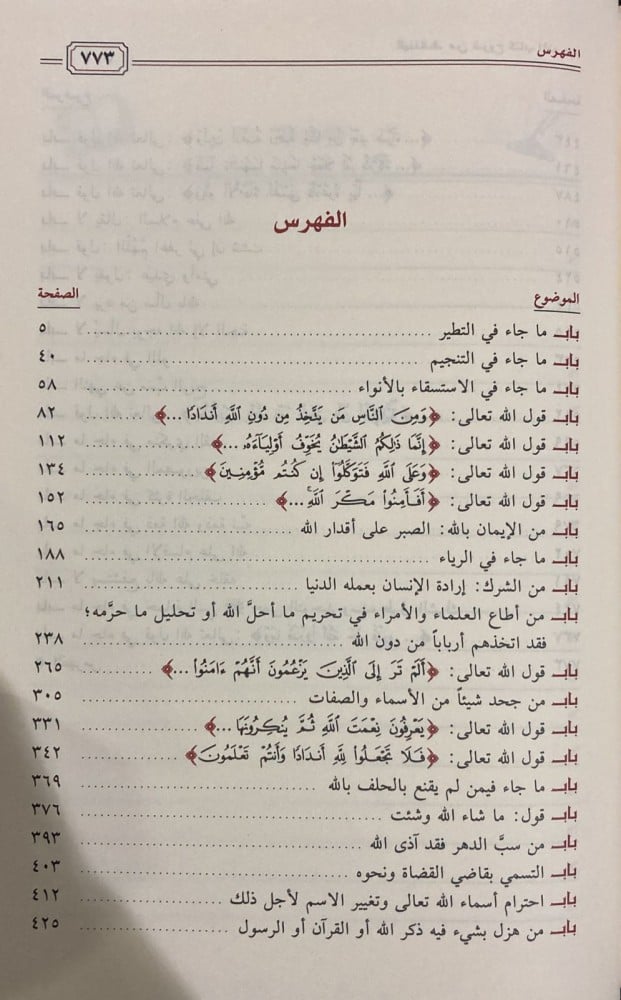 الفهرس
٧٧٣
الفهرس
الموضوع الصفحة
باب ما جاء في التطير ٥
باب ما جاء في التنجيم ٤٠
باب ما جاء في الاستسقاء بالأنواء ٥٨
باب قول الله تعالى: ﴿وَمِنَ النَّاسِ مَن يَتَّخِذُ مِن دُونِ اللَّهِ أَندَادًا...﴾ ٨٢
باب قول الله تعالى: ﴿إِنَّمَا ذَٰلِكُمُ الشَّيْطَٰنُ يُخَوِّفُ أَوْلِيَآءَهُ...﴾ ١١٢
باب قول الله تعالى: ﴿وَعَلَى اللَّهِ فَتَوَكَّلُوٓا إِن كُنتُم مُّؤْمِنِينَ﴾ ١٣٤
باب قول الله تعالى: ﴿أَفَأَمِنُوا مَكْرَ اللَّهِ ...﴾ ١٥٢
باب من الإيمان بالله: الصبر على أقدار الله ١٦٥
باب ما جاء في الرياء ١٨٨
باب من الشرك: إرادة الإنسان بعمله الدنيا ٢١١
باب من أطاع العلماء والأمراء في تحريم ما أحلَّ الله أو تحليل ما حرَّمه؛
فقد اتخذهم أرباباً من دون الله ٢٣٨
باب قول الله تعالى: ﴿أَلَمْ تَرَ إِلَى الَّذِينَ يَزْعُمُونَ أَنَّهُمْ ءَامَنُوا ...﴾ ٢٦٥
باب من جحد شيئاً من الأسماء والصفات ٣٠٥
باب قول الله تعالى: ﴿يَعْرِفُونَ نِعْمَتَ اللَّهِ ثُمَّ يُنكِرُونَهَا...﴾ ٣٣١
باب قول الله تعالى: ﴿فَلَا تَجْعَلُوا لِلَّهِ أَندَادًا وَأَنتُمْ تَعْلَمُونَ﴾ ٣٤٢
باب ما جاء فيمن لم يقنع بالحلف بالله ٣٦٩
باب قول: ما شاء الله وشئت ٣٧٦
باب من سبَّ الدهر فقد آذى الله ٣٩٣
باب التسمي بقاضي القضاة ونحوه ٤٠٣
باب احترام أسماء الله تعالى وتغيير الاسم لأجل ذلك ٤١٢
باب من هزل بشيء فيه ذكر الله أو القرآن أو الرسول ٤٢٥